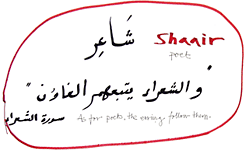 شَاعِر Shaair
poet
"والشعراء يتبعهم الغاوٗن"
سورة الشعراء As for poets, the erring follow them.